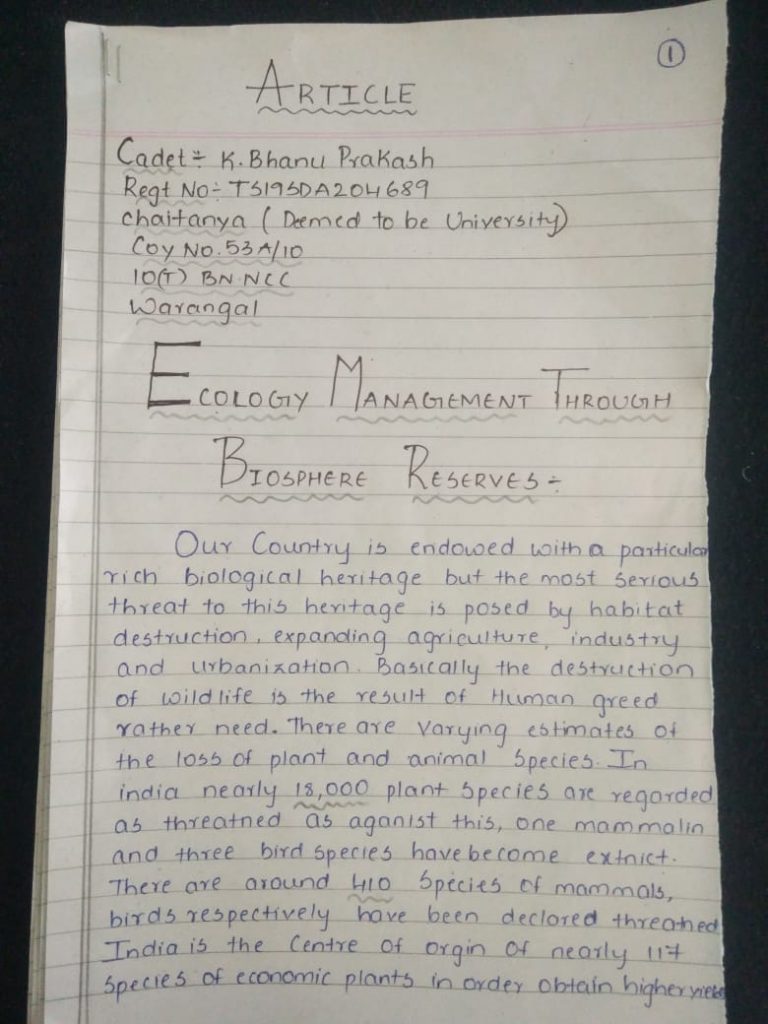 1
ARTICLE
Cadet:- K. Bhanu Prakash
Regt No:- TS19SDA204689
chaitanya (Deemed to be University)
Coy No. 53 A/10
10(T) BN.NCC
Warangal
ECOLOGY MANAGEMENT THROUGH
BIOSPHERE RESERVES:-
Our Country is endowed with a particular
rich biological heritage but the most serious
threat to this heritage is posed by habitat
destruction, expanding agriculture, industry
and urbanization. Basically the destruction
of wildlife is the result of Human greed
rather need. There are varying estimates of
the loss of plant and animal species. In
india nearly 18,000 plant species are regarded
as threatned as aganist this, one mammalin
and three bird species have become extnict.
There are around 410 species of mammals,
birds respectively have been declared threathed
India is the Centre of orgin of nearly 117
species of economic plants in order obtain higher